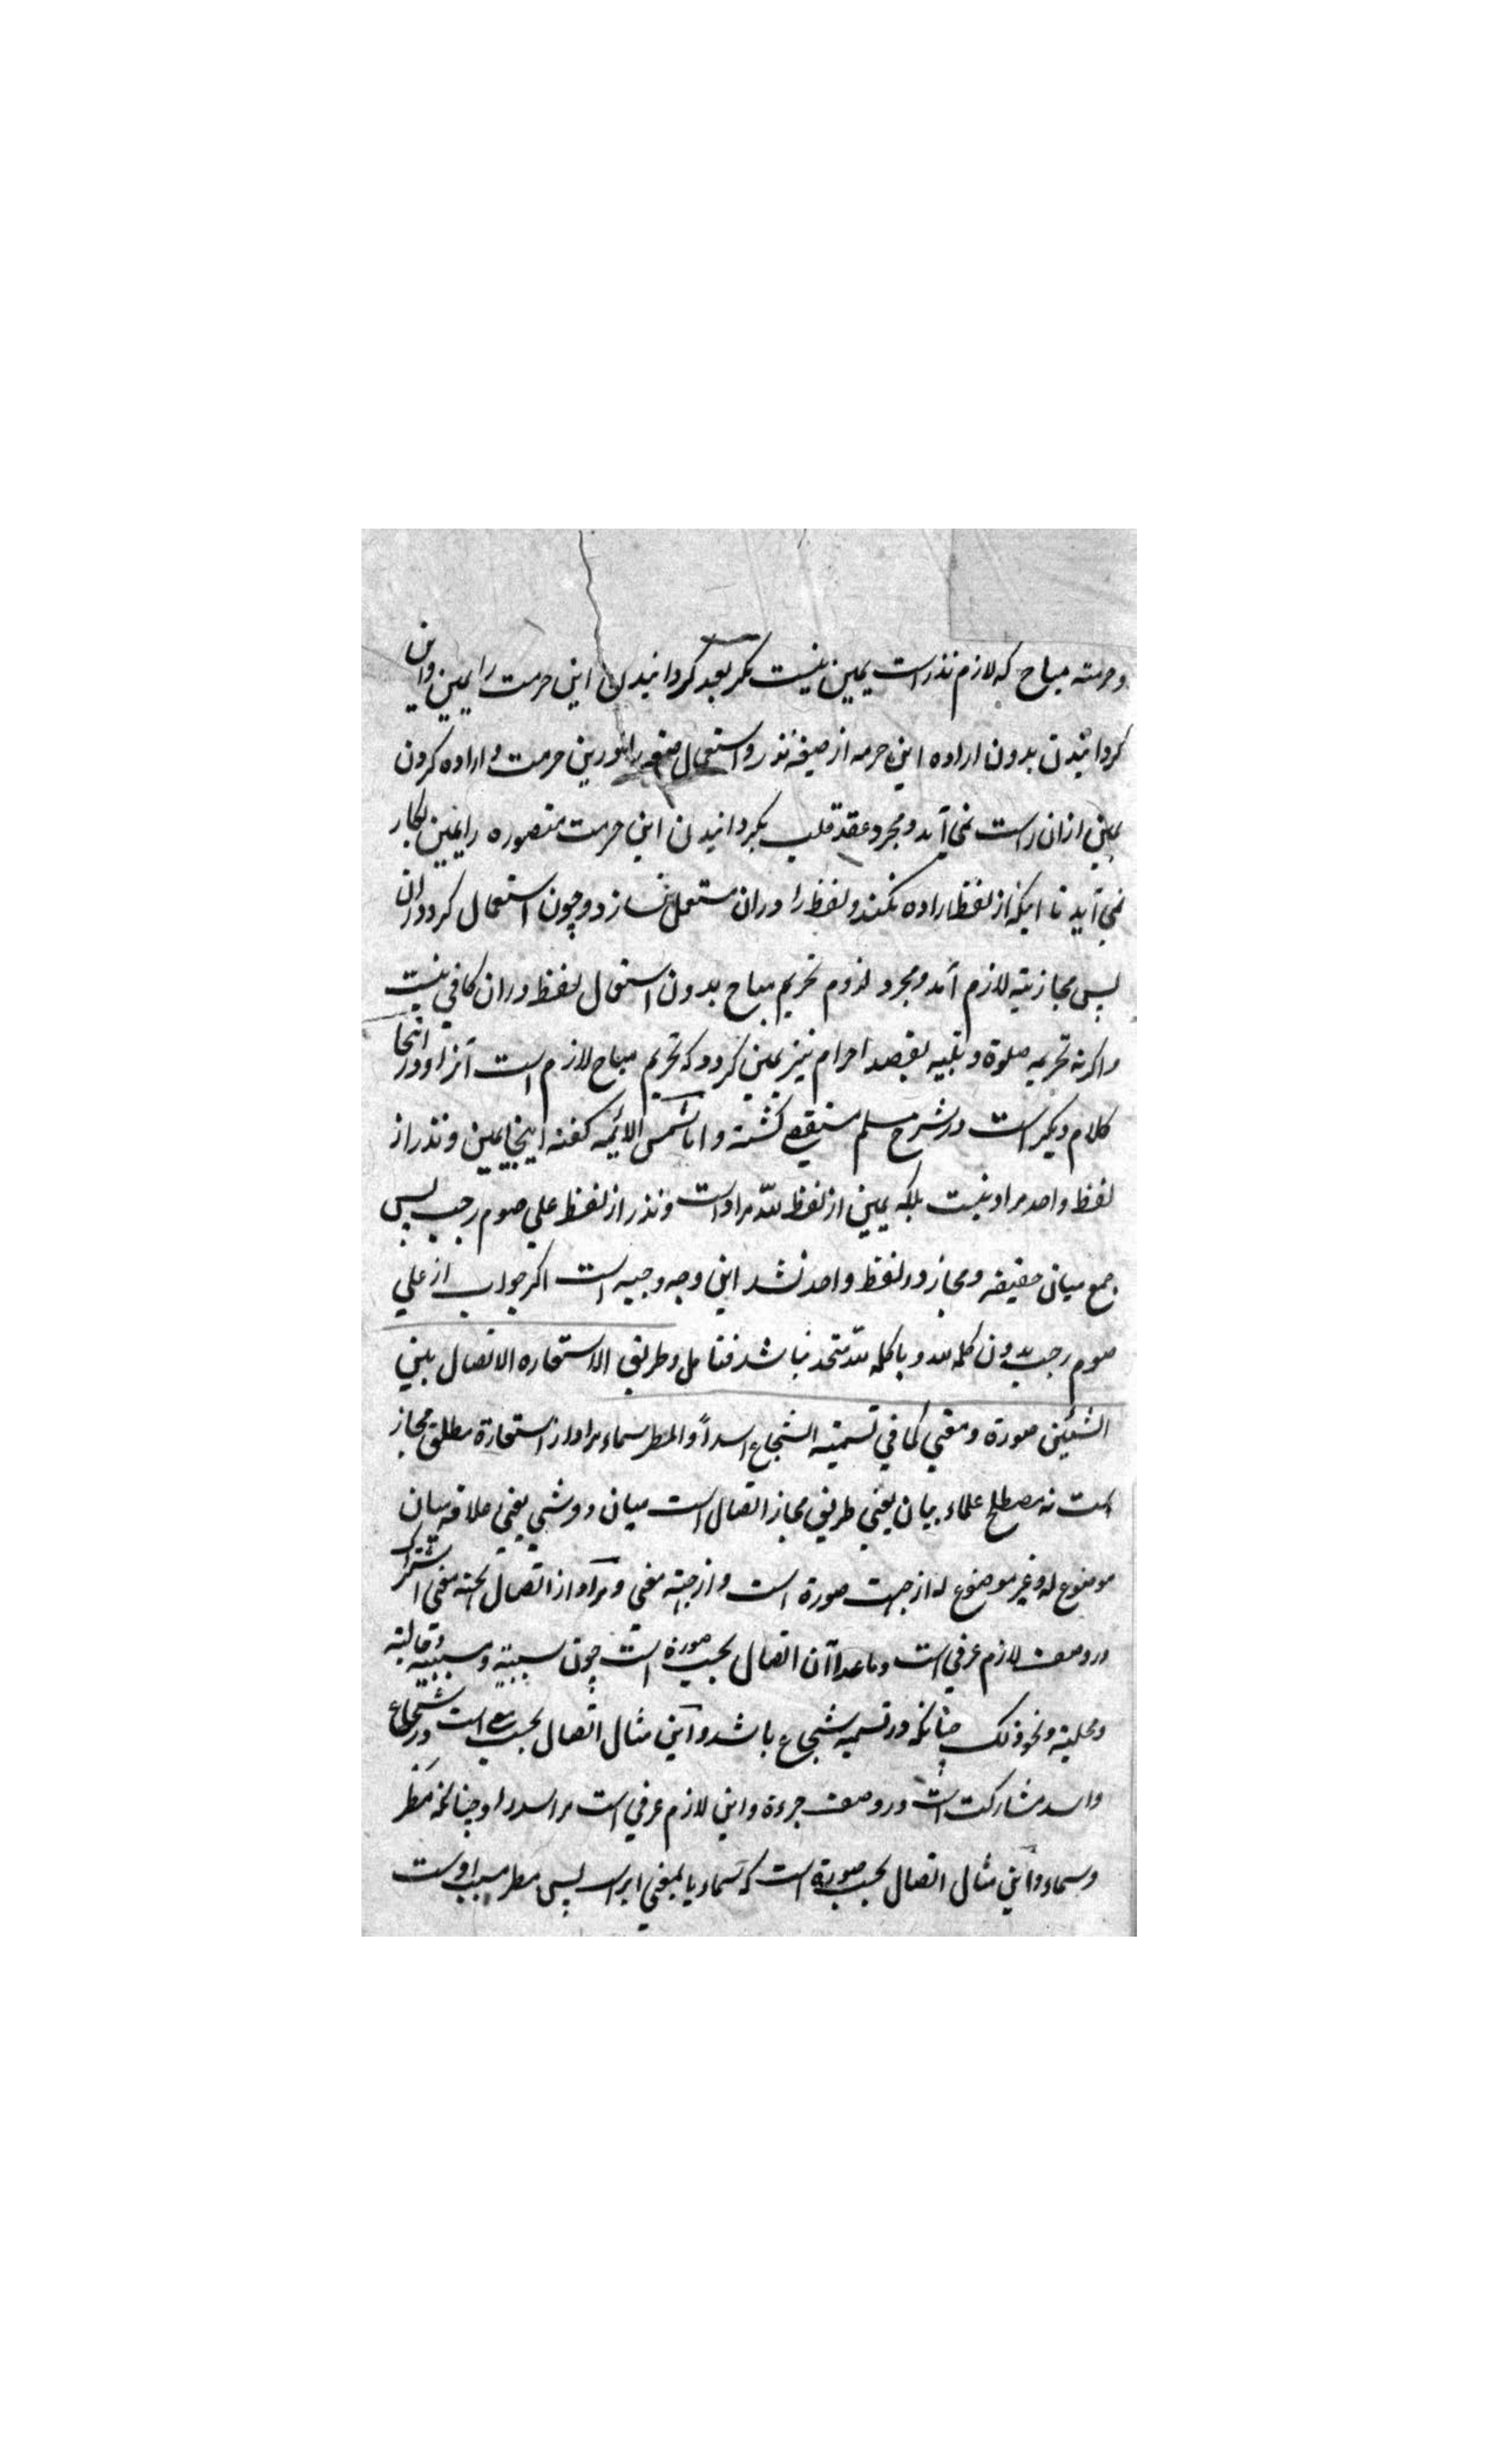 وحرمته مباح که لازم نذر است یمین نیست مگر بعد گردانیدن این حرمت را یمین واین
گردانیدن بدون اراده این حرمه از صیغه نذر واستعمال صیغه را درین حرمت و اراده کردن
یمین ازان راست نمی آید ومجرد عقد قلب بگردانیدن این حرمت متصوره را یمین بکار
نمی آید تا اینکه از لفظ اراده نکند ولفظ را دران مستعمل نسازد وچون استعمال کرد دران
پس مجازیته لازم آمد ومجرد لزوم تحریم مباح بدون استعمال لفظ دران کافی نیست
واگرنه تحریمه صلوة وتلبیه بقصد احرام نیز یمین گردد که تحریم مباح لازم است آنرا ودر اینجا
کلام دیگر است در شرح مسلم منقح گشته واما شمس الائمه گفته اینجا یمین ونذر از
لفظ واحد مراد نیست بلکه یمین از لفظ لله مراد است ونذر از لفظ علی صوم رجب پس
جمع میان حقیقه ومجاز در لفظ واحد نشد این وجه وجیه است اگر جواب از علی
صوم رجب بدون کلمه لله وبا کلمه لله متحد نباشد فتامل وطریق الاستعاره الاتصال بین
الشیئین صورة ومعنی کما فی تسمیته الشجاع اسداً والمطر سماء مراد از استعارة مطلق مجاز
است نه مصطلح علماء بیان یعنی طریق مجاز اتصال است میان دو شی یعنی علاقه میان
موضوع له وغیر موضوع له از جهت صورة است واز جهته معنی ومراد از اتصال بجهته معنی اشتراک
در وصف لازم عرفی است وماعدا آن اتصال بحسب صورة است چون سببیته ومسببیته وحالیته
ومحلیته ونحو ذلک چنانکه در تسمیه شجاع باشد واین مثال اتصال بحسب معنی است در شجاع
واسد مشارکت است در وصف جرءة واین لازم عرفی است مر اسد را وچنانکه مطر
وسماء واین مثال اتصال بحسب صورة است که سماء یا بمعنی ابر است پس مطر مسبب اوست